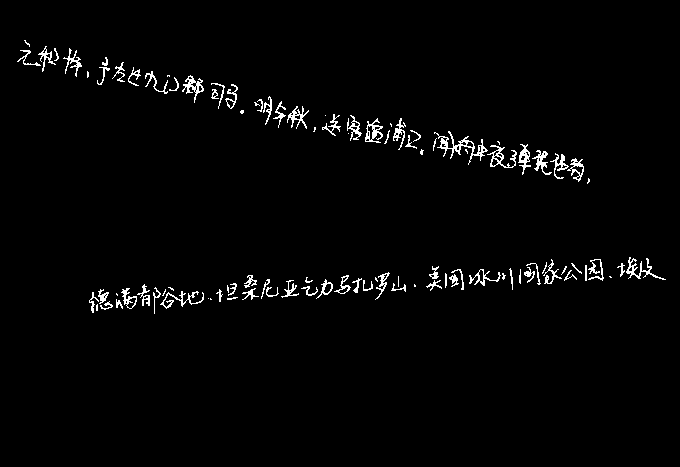 元和十年，予左迁九江郡司马。明年秋，送客湓浦口，闻舟中夜弹琵琶者，
德满都谷地、坦桑尼亚乞力马扎罗山、美国冰川国家公园、埃及